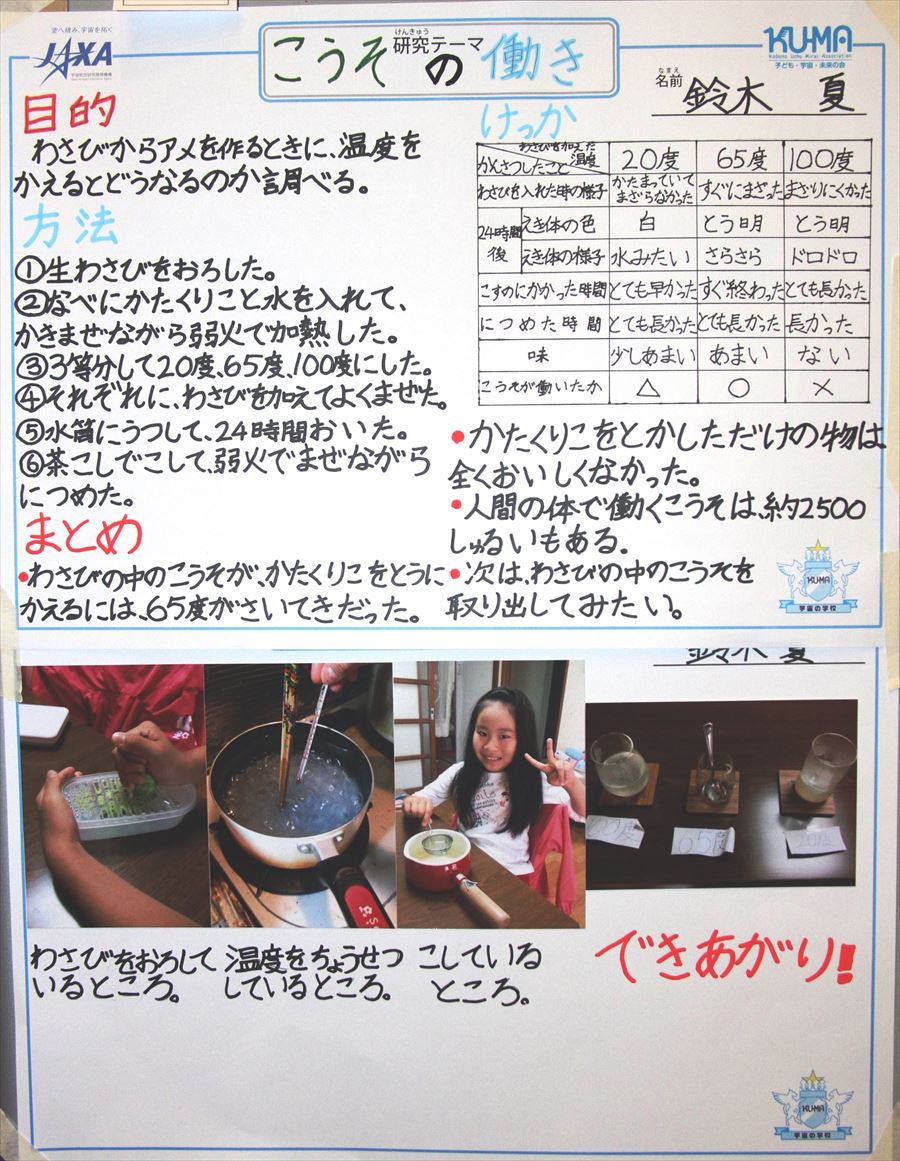 空へ挑み、宇宙を拓く
JAXA
宇宙航空研究開発機構
けんきゅう
研究テーマ
こうその働き
KU-MA
Kodomo Uchu Mirai Association
子ども・宇宙・未来の会
なまえ
名前 鈴木 夏
目的
わさびからアメを作るときに、温度を
かえるとどうなるのか調べる。
方法
①生わさびをおろした。
②なべにかたくりこと水を入れて、
かきまぜながら弱火で加熱した。
③3等分して20度、65度、100度にした。
④それぞれに、わさびを加えてよくまぜた。
⑤水筒にうつして、24時間おいた。
⑥茶こしでこして、弱火でまぜながら
につめた。
まとめ
•わさびの中のこうそが、かたくりこをとうに
かえるには、65度がさいてきだった。
けっか
かんさつしたこと わさびを加えた温度 20度 65度 100度
わさびを入れた時の様子 かたまっていてまざらなかった すぐにまざった まざりにくかった
24時間後 えき体の色 白 とう明 とう明
えき体の様子 水みたい さらさら ドロドロ
こすのにかかった時間 とても早かった すぐ終わった とても長かった
につめた時間 とても長かった とても長かった 長かった
味 少しあまい あまい ない
こうそが働いたか △ ○ ×
•かたくりこをとかしただけの物は
全くおいしくなかった。
•人間の体で働くこうそは、約2500
しゅるいもある。
•次は、わさびの中のこうそを
取り出してみたい。
KUMA
宇宙の学校
鈴木 夏
100度
65度
20度
わさびをおろして
いるところ。
温度をちょうせつ
しているところ。
こしている
ところ。
できあがり!
KUMA
宇宙の学校